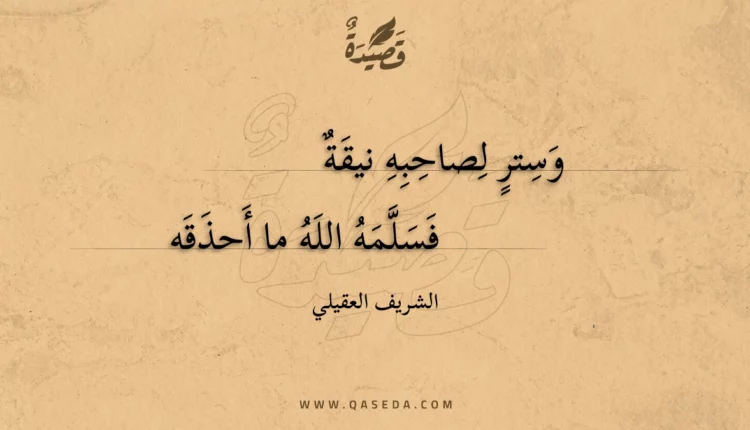 قَصِيْدَةٌ
وَسِترٍ لِصاحِبِهِ نيقَةٌ
فَسَلَّمَهُ اللَهُ ما أَحذَقَه
الشريف العقيلي
WWW.QASEDA.COM